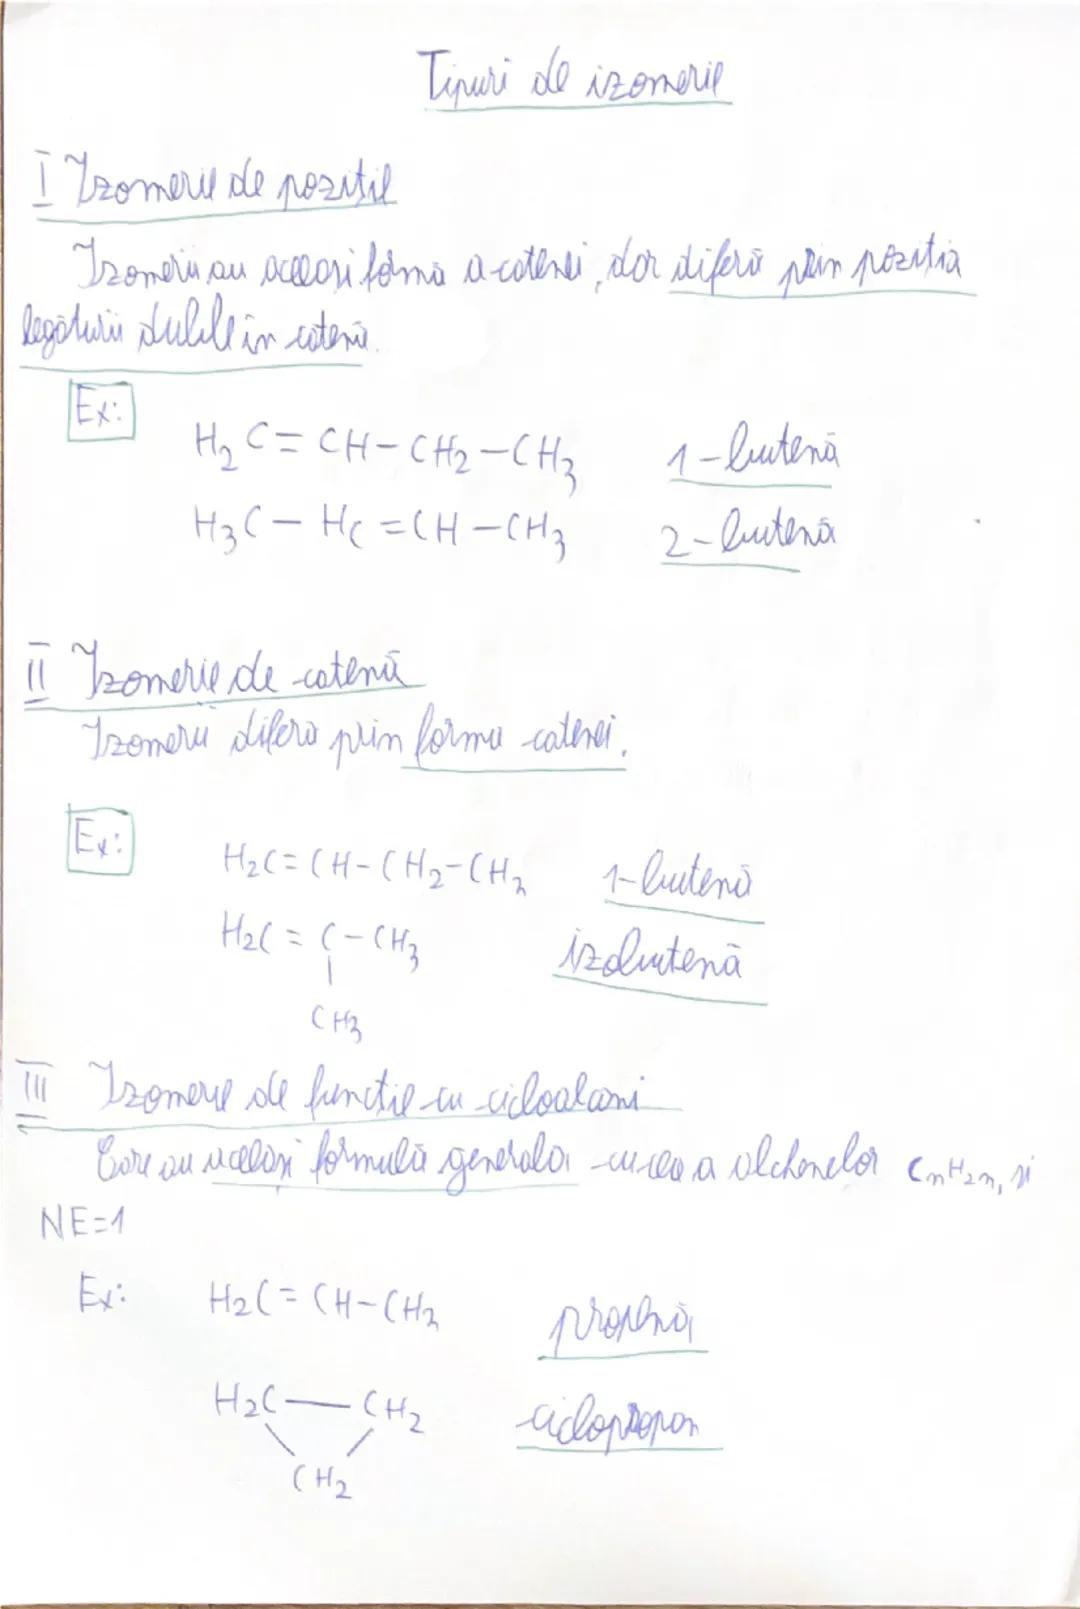 Tipuri de izomerie
I Izomerie de poziție
Izomerii au aceeași formă a catenei, dar diferă prin poziția
legăturii duble în catenă.
Ex:
H₂C=CH-CH₂-CH₃ 1-butenă
H₃C-HC=CH-CH₃ 2-butenă
II Izomerie de catenă
Izomerii diferă prin forma catenei.
Ex:
H₂C=CH-CH₂-CH₃ 1-butenă
H₂C=C-CH₃ izobutenă
|
CH₃
III Izomerie de funcție cu cicloalcani
Care au aceeași formulă generală cu cea a alchenelor CnH2n, și
NE=1
Ex: H₂C=CH-CH₃ propenă
H₂C—CH₂ ciclopropan
\ /
CH₂